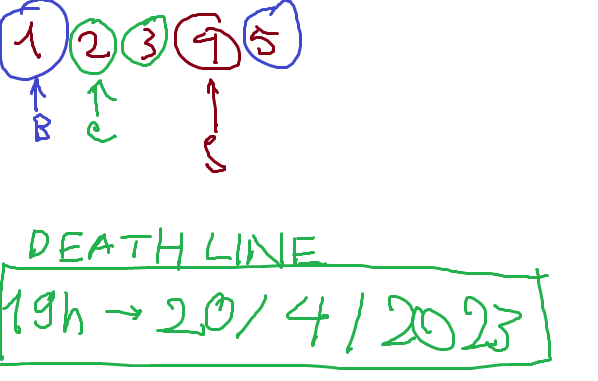 1 2 3 4 5
B C S
DEATH LINE
19h → 20/4/2023